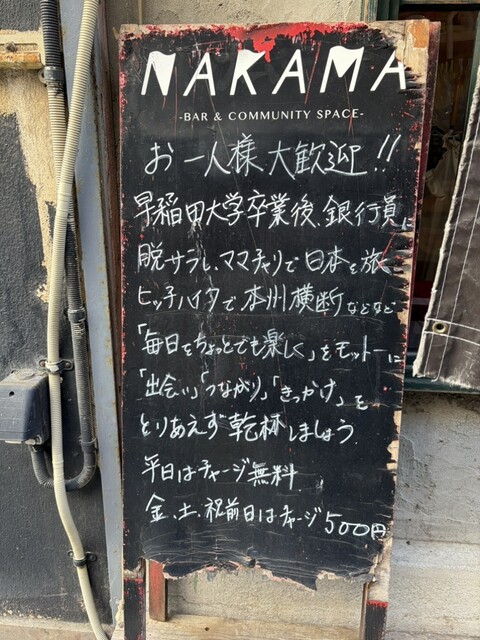 NAKAMA
-BAR & COMMUNITY SPACE-
お一人様大歓迎!!
早稲田大学卒業後、銀行員に
脱サラし、ママチャリで日本を旅
ヒッチハイクで本州横断などなど
「毎日をちょっとでも楽しく」をモットーに
「出会い」「つながり」「きっかけ」を
とりあえず乾杯しましょう
平日はチャージ無料
金、土、祝前日はチャージ500円